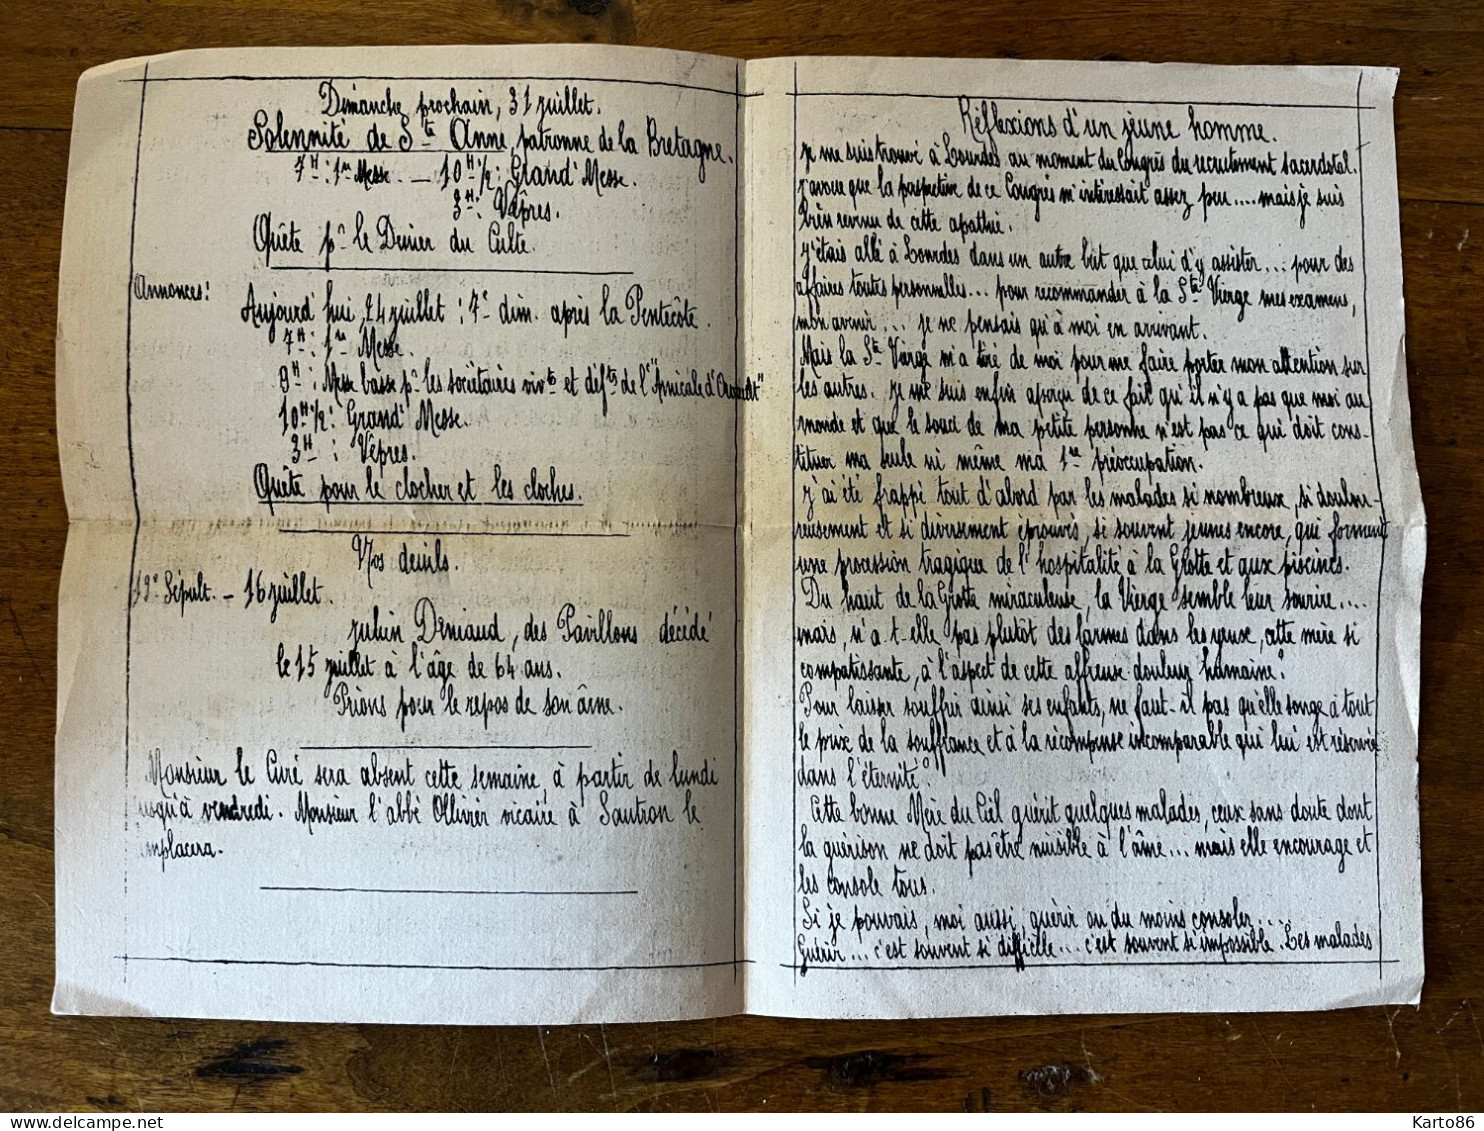 Dimanche prochain, 31 juillet.
Solennité de Ste Anne, patronne de la Bretagne.
7H : 1re Messe. — 10H 1/2 : Grand'Messe.
3H : Vêpres.
Quête pr le Denier du Culte.
Annonces :
Aujourd'hui, 24 juillet : 7e dim. après la Pentecôte.
7H : 1re Messe.
9H : Messe basse pr les sociétaires vivts et défts de l'"Amicale d'Orvault"
10H 1/2 : Grand'Messe.
3H : Vêpres.
Quête pour le clocher et les cloches.
Nos deuils.
19e Sépult. - 16 juillet.
Julien Deniaud, des Pavillons décédé
le 15 juillet à l'âge de 64 ans.
Prions pour le repos de son âme.
Monsieur le Curé sera absent cette semaine, à partir de lundi
jusqu'à vendredi. Monsieur l'abbé Ollivier vicaire à Sautron le
remplacera.
Réflexions d'un jeune homme.
Je me suis trouvé à Lourdes au moment du Congrès du recrutement sacerdotal.
J'avoue que la perspective de ce Congrès m'intéressait assez peu.... mais je suis
bien revenu de cette apathie.
J'étais allé à Lourdes dans un autre but que celui d'y assister... pour des
affaires toutes personnelles... pour recommander à la Ste Vierge mes examens,
mon avenir... je ne pensais qu'à moi en arrivant.
Mais la Ste Vierge m'a tiré de moi pour me faire porter mon attention sur
les autres. Je me suis enfin aperçu de ce fait qu'il n'y a pas que moi au
monde et que le souci de ma petite personne n'est pas ce qui doit cons-
tituer ma seule ni même ma 1re préoccupation.
J'ai été frappé tout d'abord par les malades si nombreux, si doulou-
reusement et si diversement éprouvés, si souvent jeunes encore, qui forment
une procession tragique de l'hospitalité à la Grotte et aux piscines.
Du haut de la Grotte miraculeuse, la Vierge semble leur sourire....
mais, n'a-t-elle pas plutôt des larmes dans les yeux, cette mère si
compatissante, à l'aspect de cette affreuse douleur humaine ?
Pour laisser souffrir ainsi ses enfants, ne faut-il pas qu'elle songe à tout
le prix de la souffrance et à la récompense incomparable qui lui est réservée
dans l'éternité ?
Cette bonne Mère du Ciel guérit quelques malades, ceux sans doute dont
la guérison ne doit pas être nuisible à l'âme... mais elle encourage et
les console tous.
Si je pouvais, moi aussi, guérir ou du moins consoler....
Guérir... c'est souvent si difficile... c'est souvent si impossible. Les malades
Karto86